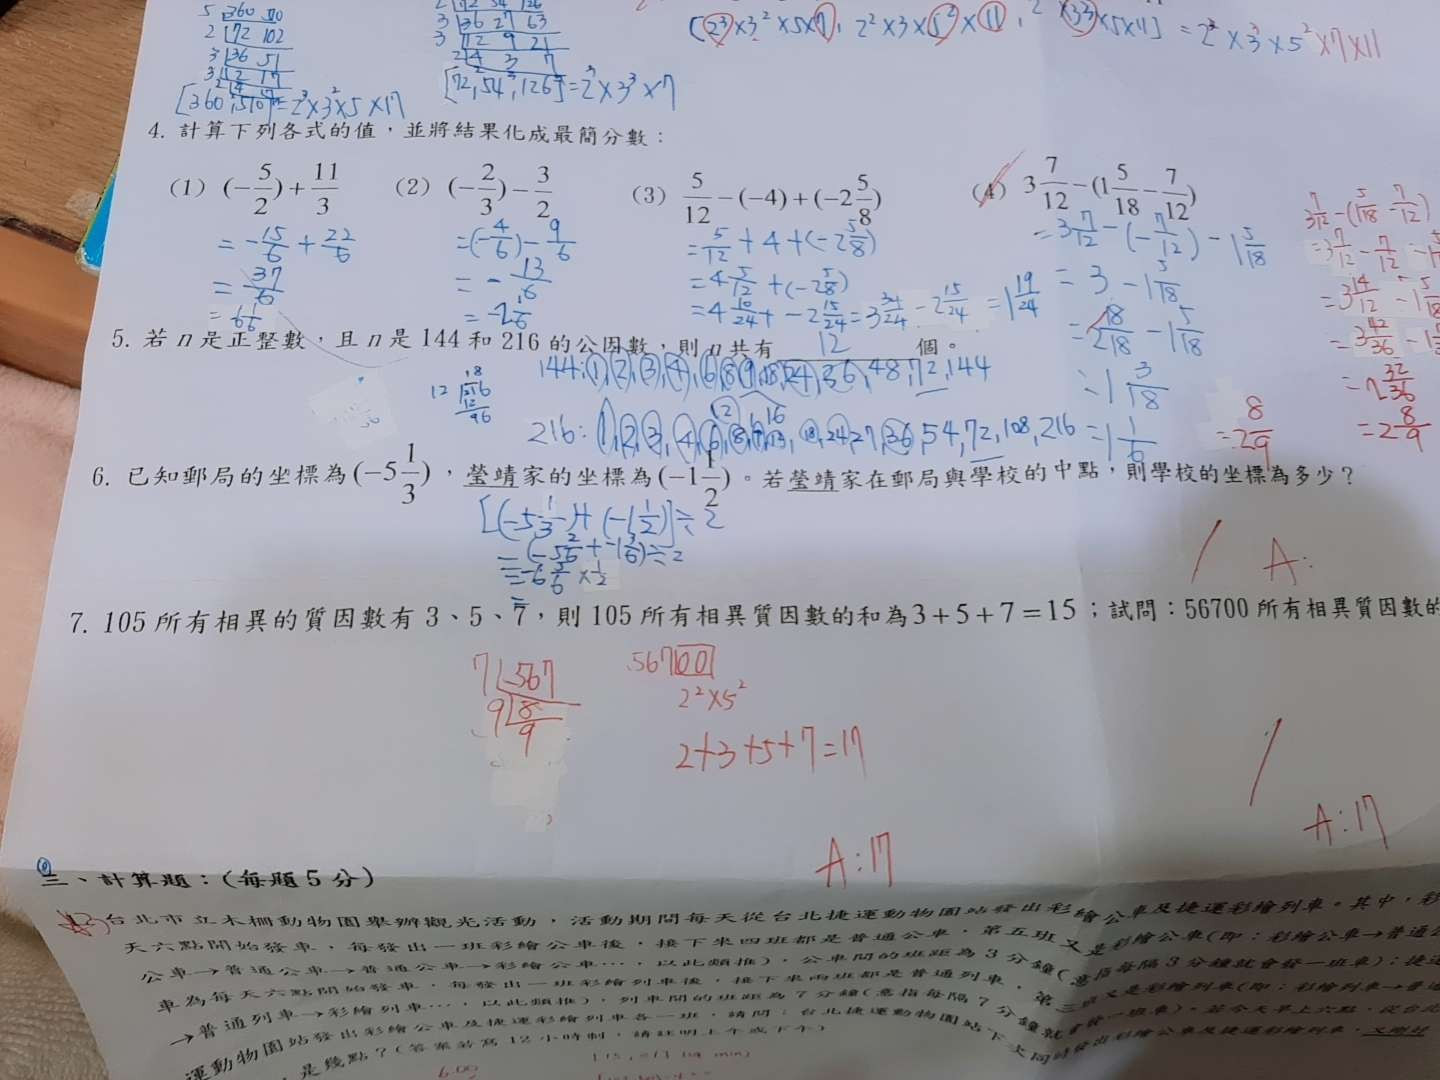 5 360 510
2 72 102
3 36 51
[360,510]=2³×3²×5×17
3 36 27 63
3 12 9 21
4 3 7
[72,54,126]=2³×3³×7
[2³×3²×5×7, 2²×3×5²×11, 2×3³×5×11] = 2³×3³×5²×7×11
4. 計算下列各式的值，並將結果化成最簡分數：
(1) (-5/2)+11/3
= -15/6 + 22/6
= 37/6
= 6 1/6
(2) (-2/3)-3/2
=(-4/6)-9/6
= -13/6
= -2 1/6
(3) 5/12-(-4)+(-2 5/8)
= 5/12+4+(-2 5/8)
=4 5/12+(-2 5/8)
=4 10/24+-2 15/24=3 34/24-2 15/24=1 19/24
(4) 3 7/12-(1 5/18-7/12)
=3 7/12-(-7/12)-1 5/18
= 3 - 1 5/18
=2 18/18-1 5/18
=1 3/18
=1 1/6
3 7/12-(1 5/18-7/12)
=3 14/12-1 5/18
=2 32/36
=2 8/9
=2 8/9
5. 若 n 是正整數，且 n 是 144 和 216 的公因數，則 n 共有 12 個。
144:1,2,3,4,6,8,9,18,24,36,48,72,144
12 216
18
12
96
12 16
216:1,2,3,4,6,8,9,13,18,24,27,36,54,72,108,216
6. 已知郵局的坐標為(-5 1/3)，瑩靖家的坐標為(-1 1/2)。若瑩靖家在郵局與學校的中點，則學校的坐標為多少？
[(-5 1/3)+(-1 1/2)]÷2
=(-5 2/6+-1 3/6)÷2
=-6 5/6×1/2
=
A:
7. 105 所有相異的質因數有 3、5、7，則 105 所有相異質因數的和為 3+5+7=15；試問：56700 所有相異質因數的
7 567
9 8
9
56700
2²×5²
2+3+5+7=17
A:17
A:17
三、計算題：(每題 5 分)
台北市立木柵動物園舉辦觀光活動，活動期間每天從台北捷運動物園站發出彩繪公車及捷運彩繪列車。其中，彩
天六點開始發車，每發出一班彩繪公車後，接下來四班都是普通公車，第五班又是彩繪公車(即：彩繪公車→普通公
公車→普通公車→普通公車→彩繪公車…，以此類推)，公車間的班距為 3 分鐘(意指每隔 3 分鐘就會發一班車)；捷運
車為每天六點開始發車，每發出一班彩繪列車後，接下來兩班都是普通列車，第三班又是彩繪列車(即：彩繪列車→普通
→普通列車→彩繪列車…，以此類推)，列車間的班距為 7 分鐘(意指每隔 7 分鐘就會發一班車)。若今天早上六點，從台北
運動物園站發出彩繪公車及捷運彩繪列車各一班，請問：台北捷運動物園站下次同時發出彩繪公車及捷運彩繪列車，又剛好
，是幾點？(答案若寫 12 小時制，請註明上午或下午)
6:00